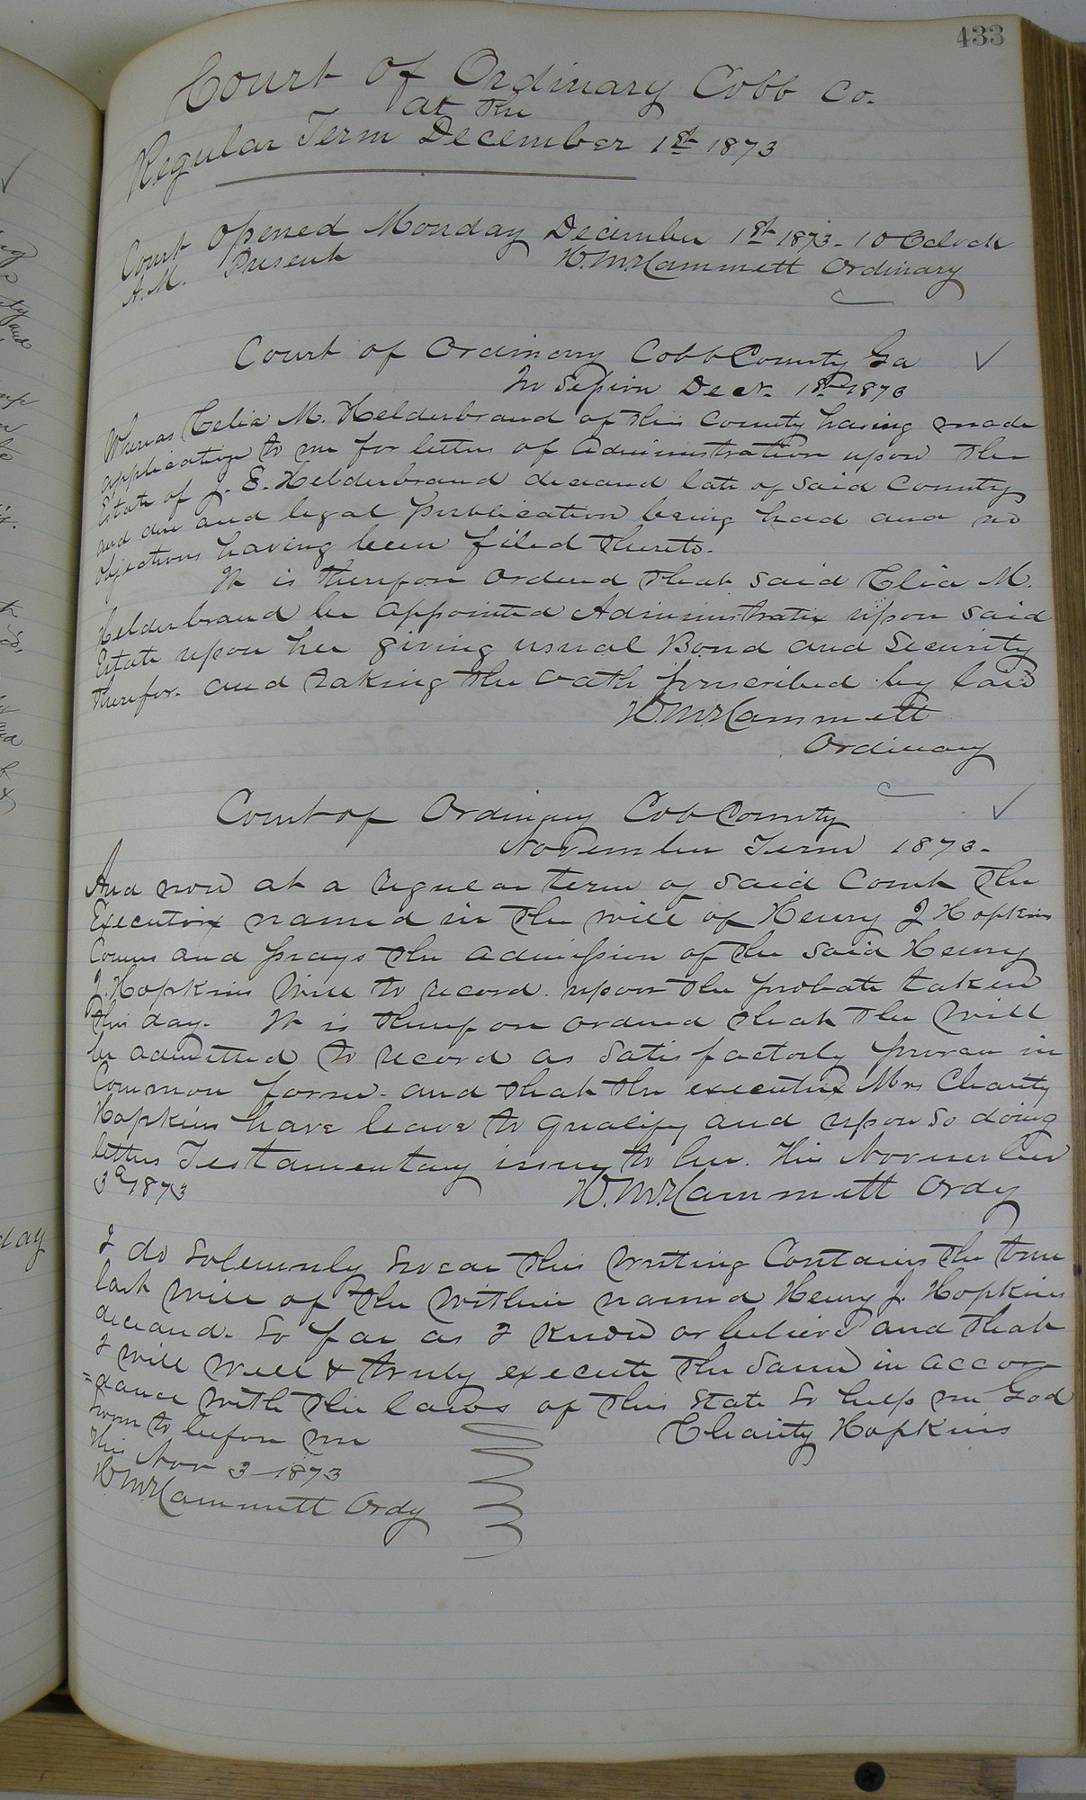 433
Court of Ordinary Cobb Co.
at the
Regular Term December 1st 1873
Court opened Monday December 1st 1873 - 10 Oclock
A.M. Present W.M. Hammett Ordinary
Court of Ordinary Cobb County Ga
In Session Decr. 1st 1873
Whereas Celia M. Helderbrand of this County having made
application to me for letters of administration upon the
Estate of J. E. Helderbrand deceased late of said County
and due and legal publication being had and no
objections having been filed thereto.
It is therefore ordered that said Celia M.
Helderbrand be appointed Administratrix upon said
Estate upon her giving usual Bond and Security
therefor. and taking the oath prescribed by law
W.M. Hammett
Ordinary
Court of Ordinary Cobb County
November Term 1873-
And now at a regular term of said Court the
Executrix named in the will of Henry J Hopkins
Comes and prays the admission of the said Henry
J. Hopkins Will to record upon the probate taken
this day. It is therefore ordered that the Will
be admitted to record as satisfactorly proven in
Common form. and that the executrix Mrs Charity
Hopkins have leave to qualify and upon so doing
letters Testamentary issue to her. This November
3d 1873 W. M. Hammett Ordy
I do solemnly swear this writing Contains the true
last will of the within named Henry J. Hopkins
deceased. so far as I know or believe and that
I will well & truly execute the same in accor
=dance with the laws of this State So help me God
Sworn to before me Charity Hopkins
this Nov 3-1873
W.M. Hammett Ordy
day